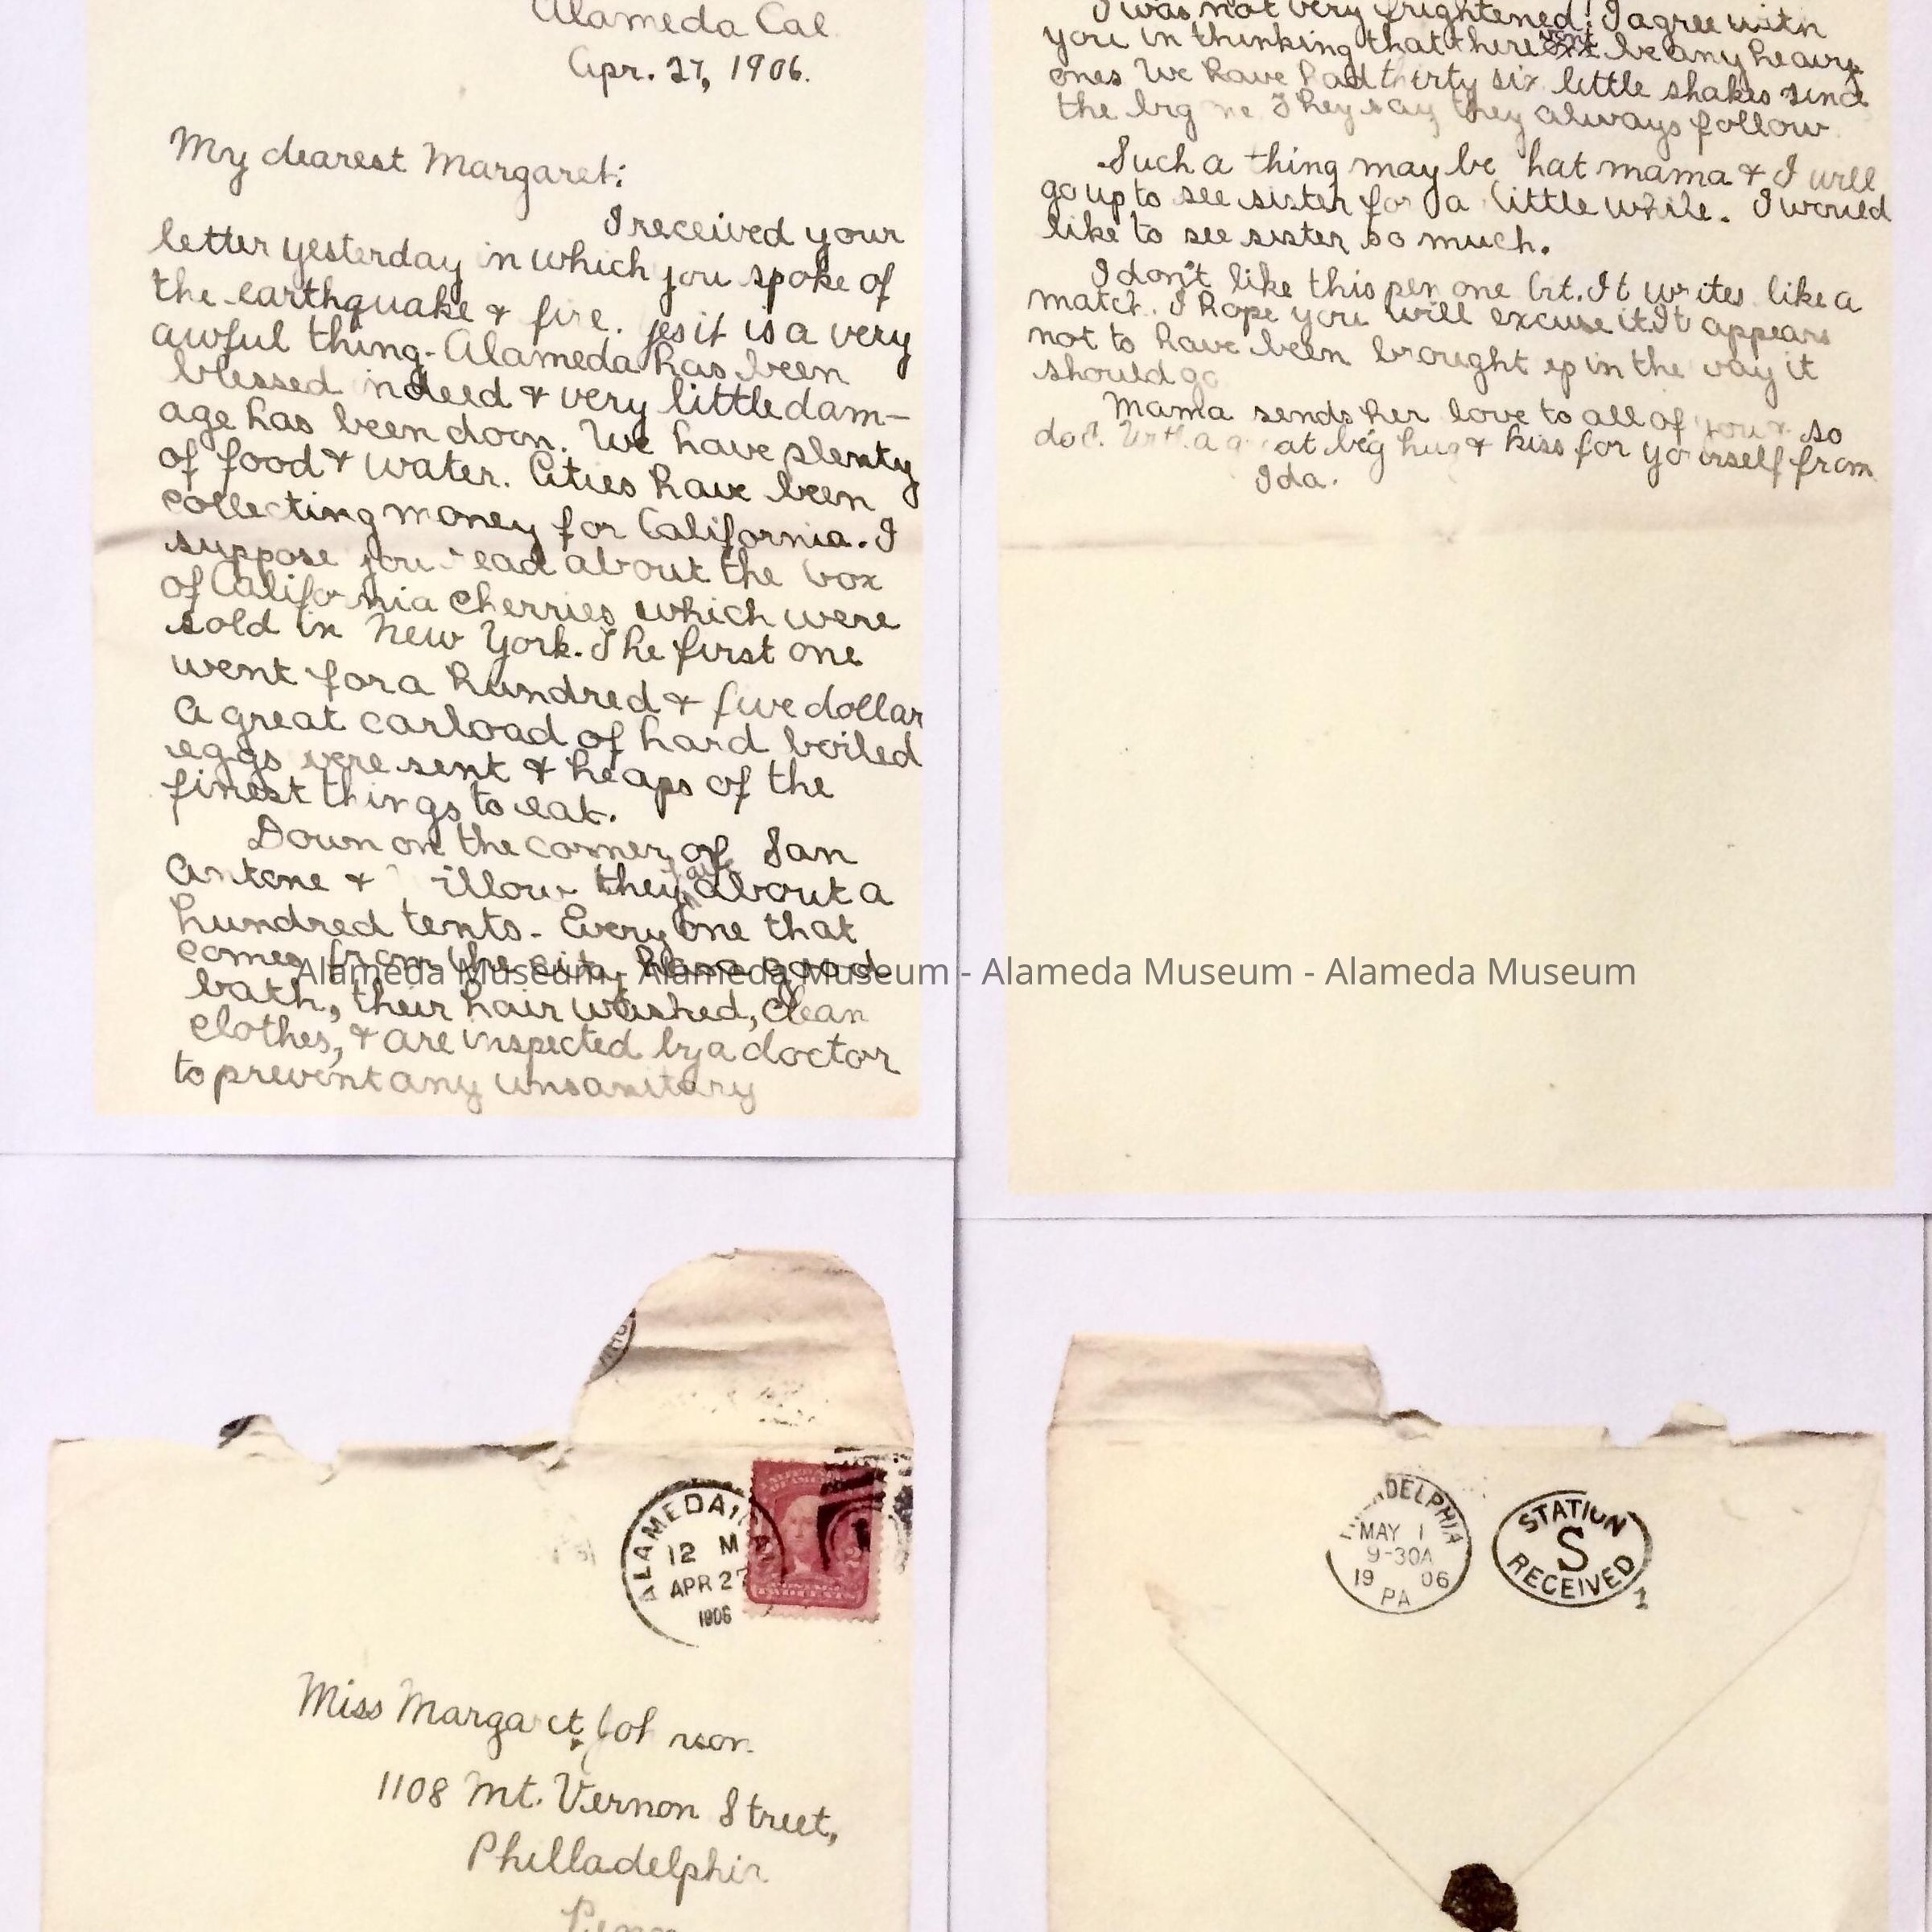 Alameda Cal.
Apr. 27, 1906.
My dearest Margaret:
I received your
letter yesterday in which you spoke of
the earthquake & fire. yes it is a very
awful thing. Alameda has been
blessed indeed & very little dam-
age has been doon. We have plenty
of food & water. Cities have been
collecting money for California. I
suppose you read about the box
of California cherries which were
sold in New York. The first one
went for a hundred & five dollar
A great carload of hard boiled
eggs were sent & heaps of the
finest things to eat.
Down on the corner of San
Antone & illow they have about a
hundred tents. Every one that
comes from the city has a good
bath, their hair washed, clean
clothes, & are inspected by a doctor
to prevent any unsanitary
I was not very frightened! I agree with
you in thinking that there wont be any heavy
ones We have had thirty six little shakes since
the big one They say they always follow
Such a thing may be that mama & I will
go up to see sister for a little while. I would
like to see sister so much.
I don't like this pen one bit. It writes like a
match. I hope you will excuse it. It appears
not to have been brought up in the way it
should go
Mama sends her love to all of you & so
do I. With a great big hug & kiss for yourself from
Ida.
Alameda Museum - Alameda Museum - Alameda Museum - Alameda Museum
ALAMEDA, CAL
12 M
APR 27
1906
Miss Margaret Johnson.
1108 Mt. Vernon Street,
Philladelphia
Penn
PHILADELPHIA
MAY 1
9-30A
19 06
PA
STATION
S
RECEIVED
1